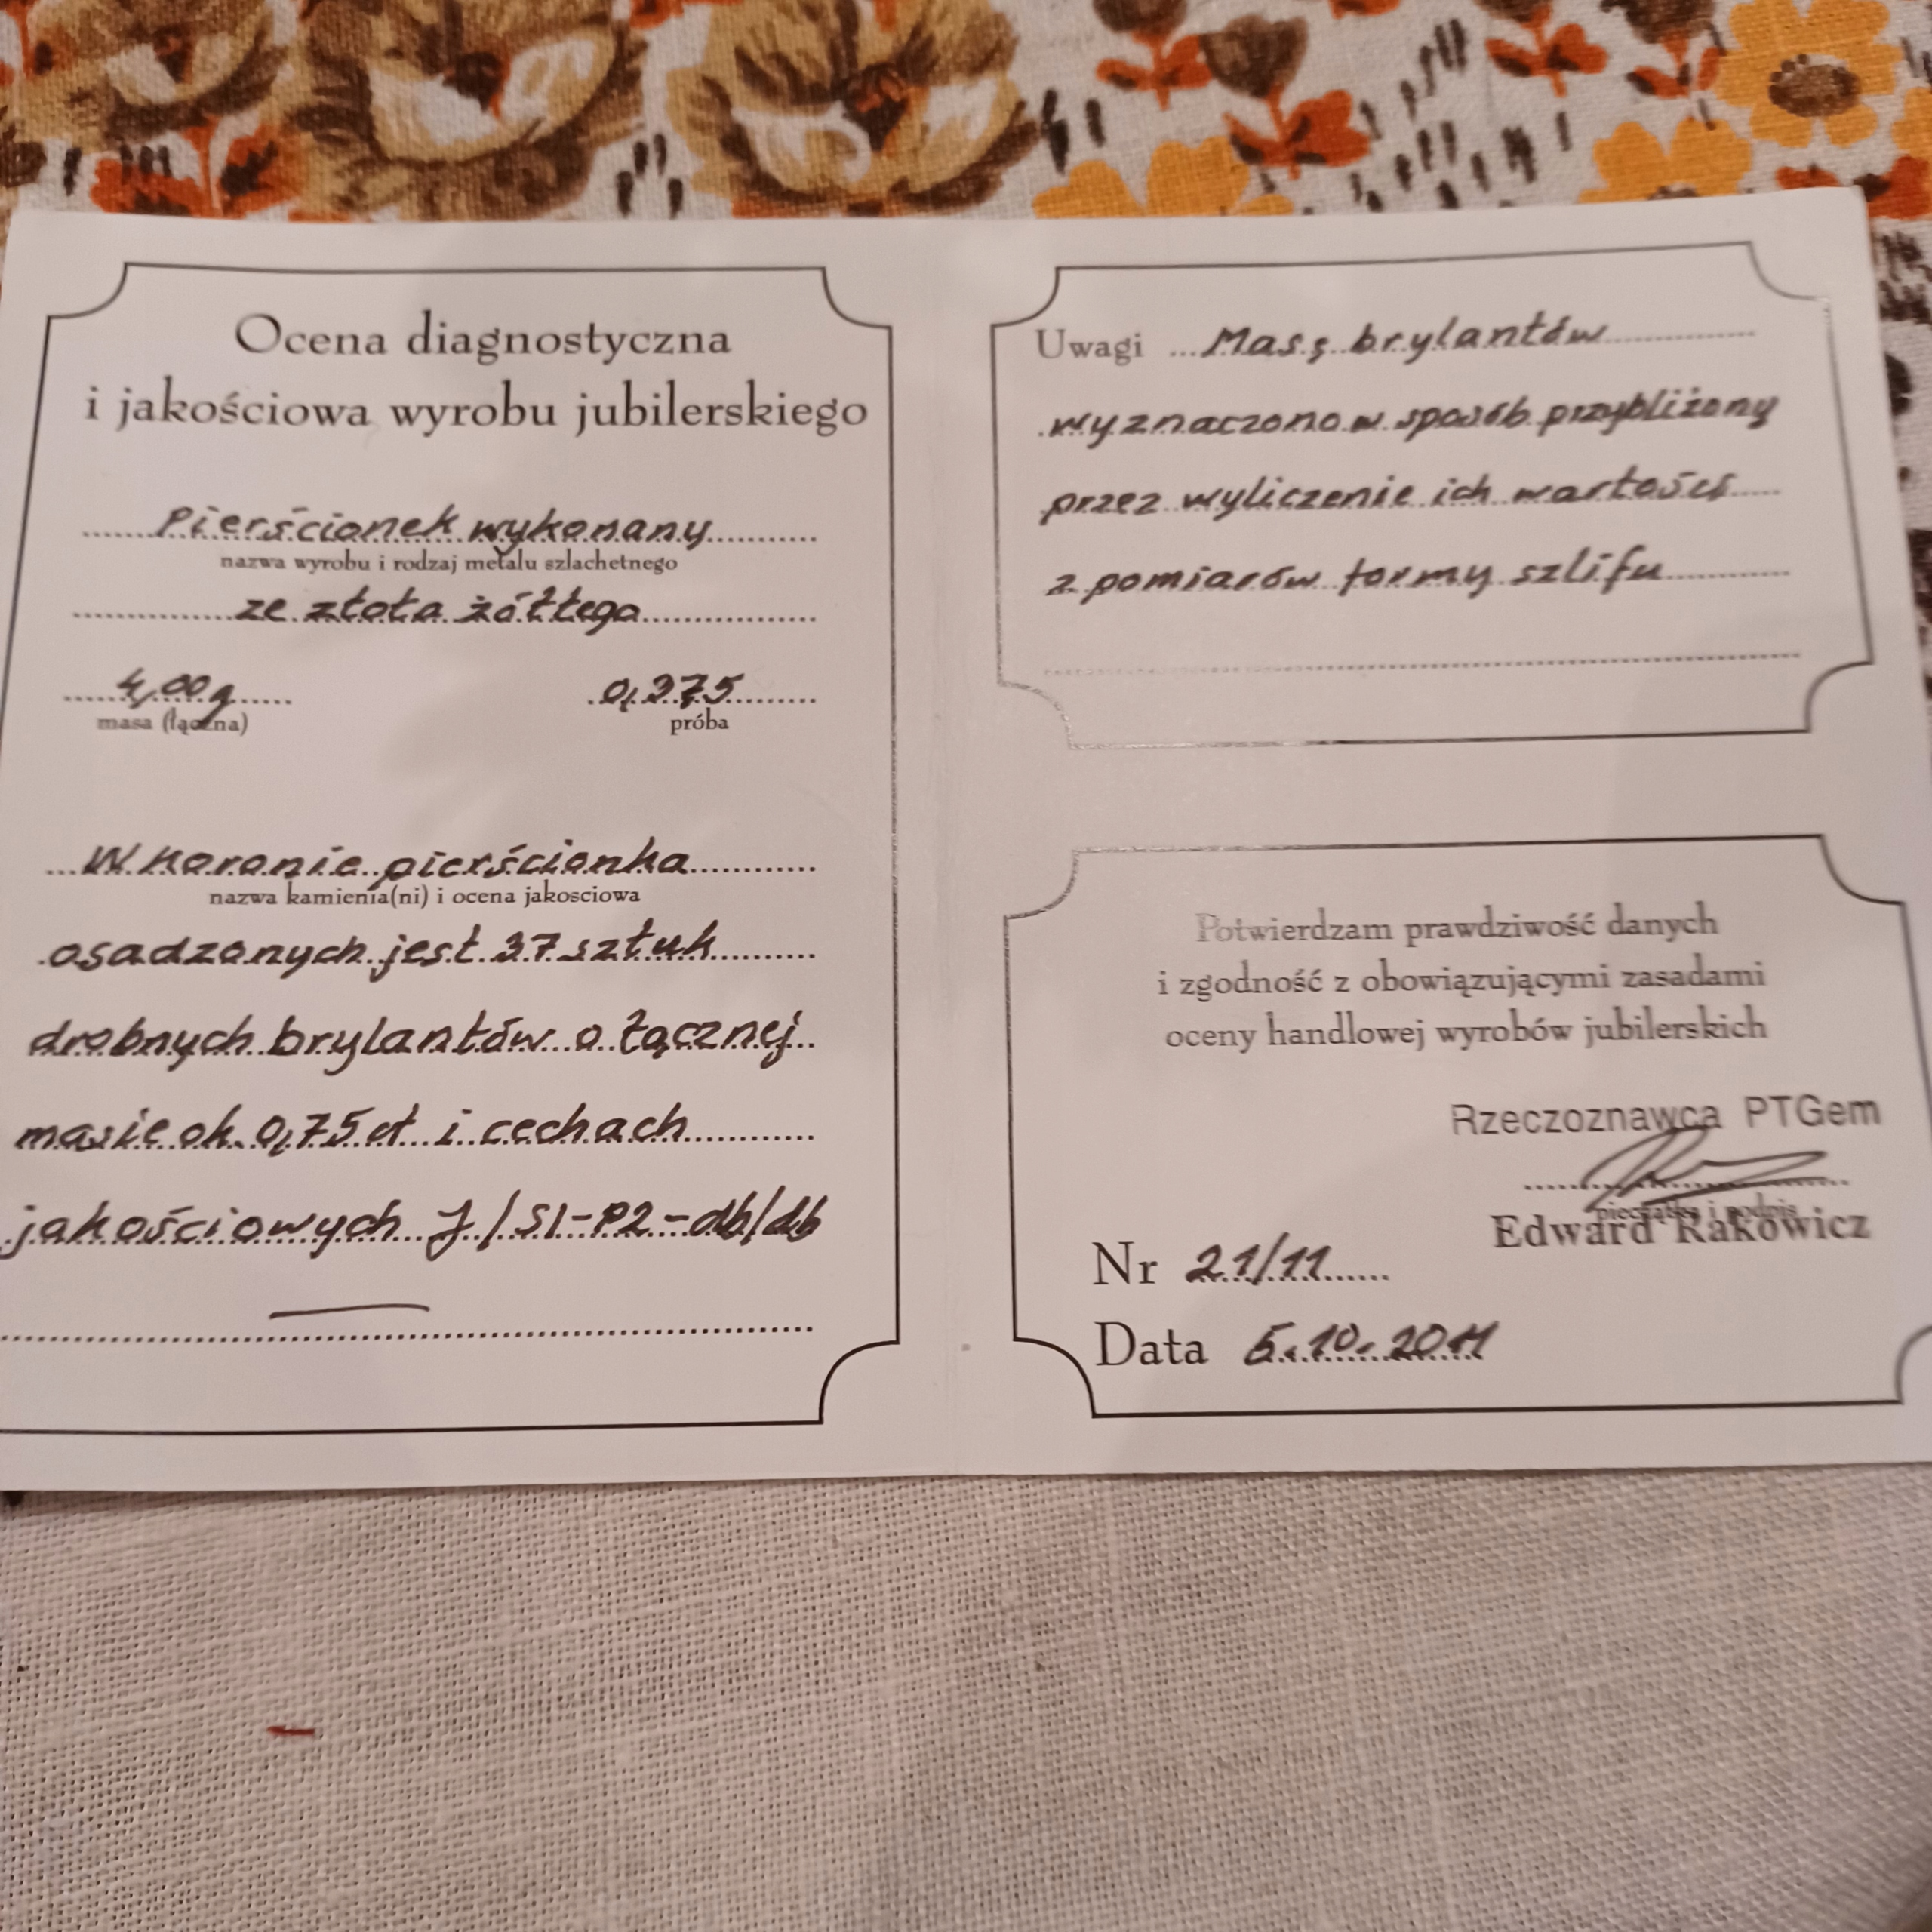 Ocena diagnostyczna
i jakościowa wyrobu jubilerskiego
Pierścionek wykonany
nazwa wyrobu i rodzaj metalu szlachetnego
ze złota żółtego
4,00g 0,375
masa (łączna) próba
W koronie pierścionka
nazwa kamienia(ni) i ocena jakosciowa
osadzonych jest 37 sztuk
drobnych brylantów o łącznej
masie ok. 0,75 ct i cechach
jakościowych J/SI-P2-db/db
Uwagi Masę brylantów
wyznaczono w sposób przybliżony
przez wyliczenie ich wartości
z pomiarów formy szlifu
Potwierdzam prawdziwość danych
i zgodność z obowiązującymi zasadami
oceny handlowej wyrobów jubilerskich
Rzeczoznawca PTGem
pieczątka i podpis
Edward Rakowicz
Nr 21/11
Data 5.10.2011